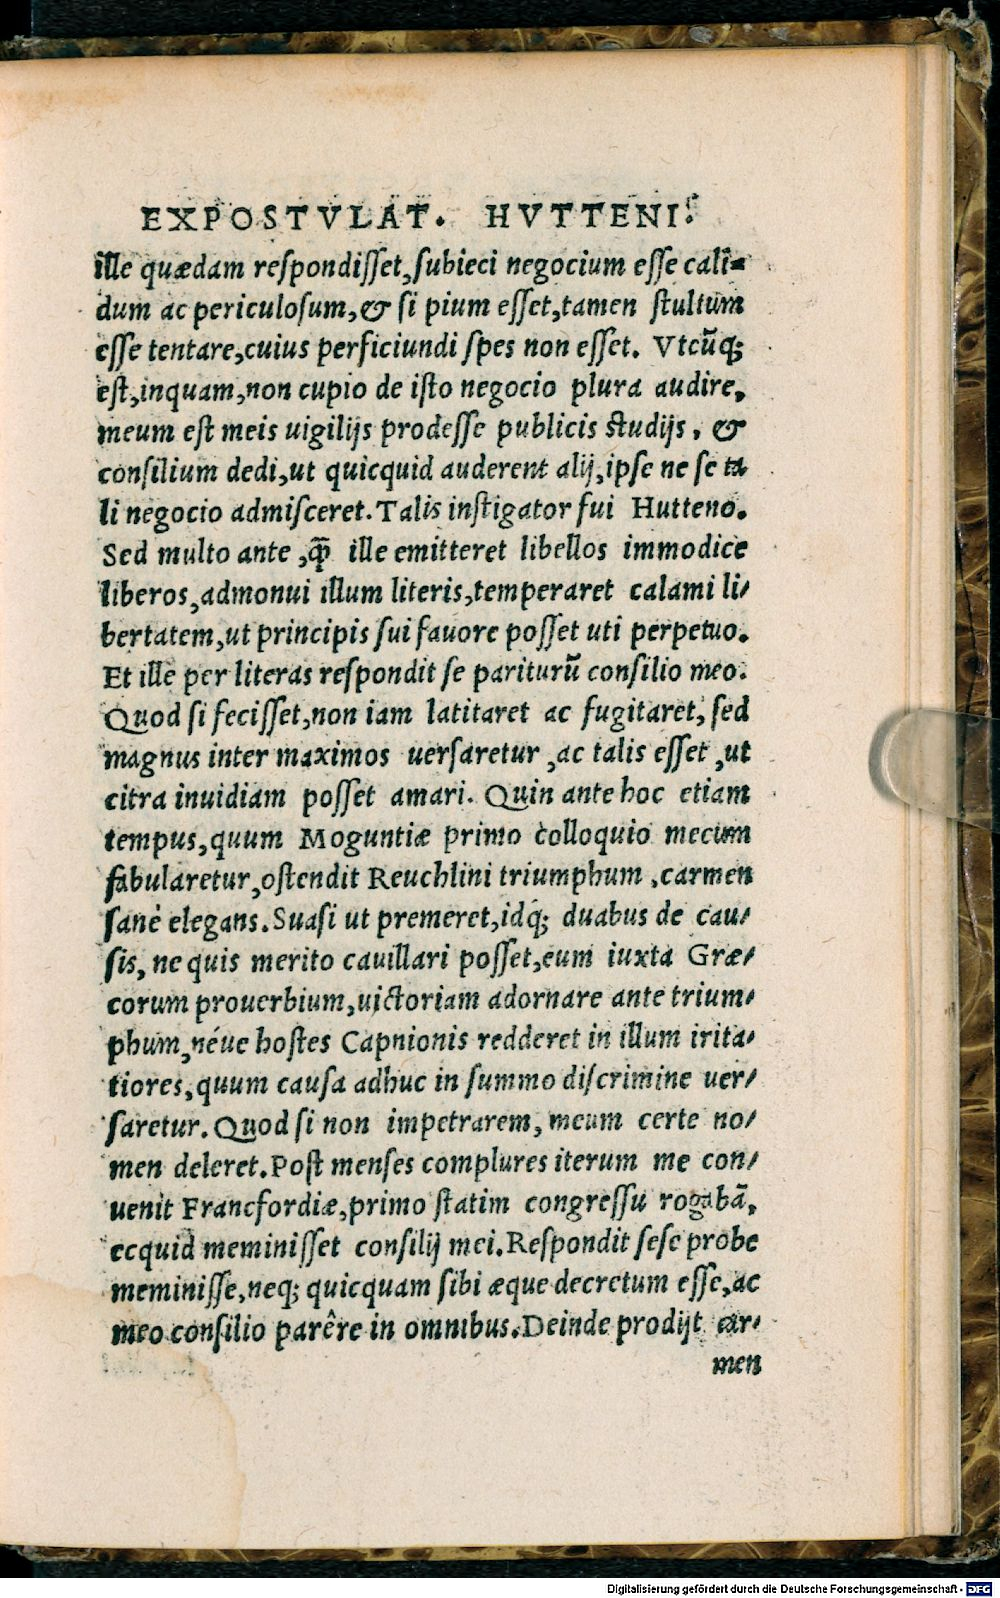 EXPOSTVLAT. HVTTENI.
ille quædam respondisset, subieci negocium esse cali-
dum ac periculosum, & si pium esset, tamen stultum
esse tentare, cuius perficiundi spes non esset. Vtcūq;
est, inquam, non cupio de isto negocio plura audire,
meum est meis uigilijs prodesse publicis studijs, &
consilium dedi, ut quicquid auderent alij, ipse ne se ta
li negocio admisceret. Talis instigator fui Hutteno.
Sed multo ante, q̄ ille emitteret libellos immodice
liberos, admonui illum literis, temperaret calami li-
bertatem, ut principis sui fauore posset uti perpetuo.
Et ille per literas respondit se pariturū consilio meo.
Quod si fecisset, non iam latitaret ac fugitaret, sed
magnus inter maximos uersaretur, ac talis esset, ut
citra inuidiam posset amari. Quin ante hoc etiam
tempus, quum Moguntiæ primo colloquio mecum
fabularetur, ostendit Reuchlini triumphum, carmen
sanè elegans. Suasi ut premeret, idq; duabus de cau-
sis, ne quis merito cauillari posset, eum iuxta Græ-
corum prouerbium, uictoriam adornare ante trium-
phum, néue hostes Capnionis redderet in illum irita-
tiores, quum causa adhuc in summo discrimine uer-
saretur. Quod si non impetrarem, meum certe no-
men deleret. Post menses complures iterum me con-
uenit Francfordiæ, primo statim congressu rogabā,
ecquid meminisset consilij mei. Respondit sese probe
meminisse, neq; quicquam sibi æque decretum esse, ac
meo consilio parêre in omnibus. Deinde prodijt car-
men
Digitalisierung gefördert durch die Deutsche Forschungsgemeinschaft - DFG